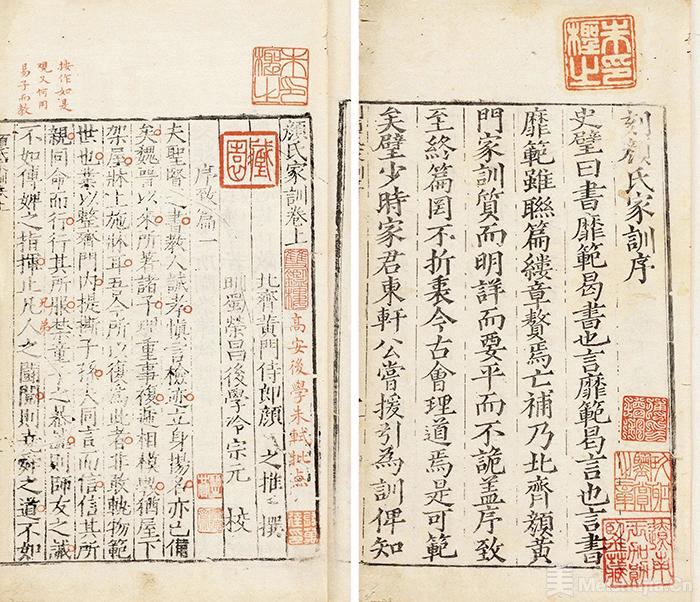 刻顏氏家訓序
史璧曰書靡範曷書也言靡範曷言也言書
靡範雖聯篇縷章贅焉亡補乃北齊顏黃
門家訓質而明詳而要平而不詭盖序致
至終篇罔不折衷今古會理道焉是可範
矣璧少時家君東軒公嘗援引為訓俾知
朱檉之印
顏氏家訓卷上
北齊黃門侍郎顏之推撰
明蜀榮昌後學冷宗元校
高安後學朱軾批點
序致篇一
夫聖賢之書教人誠孝慎言檢迹立身揚名亦已備
矣魏晉以來所著諸子理重事複遞相模斆猶屋下
架屋牀上施牀耳吾今所以復為此者非敢軌物範
世也業以整齊門內提撕子孫夫同言而信信其所
親同命而行行其所服禁童子之暴謔則師友之誡
不如傅婢之指揮止凡人之鬭鬩則堯舜之道不如
兄弟
按作如是
觀又何用
易子而教
朱檉之印
藏園
美 Meishujia.Cn